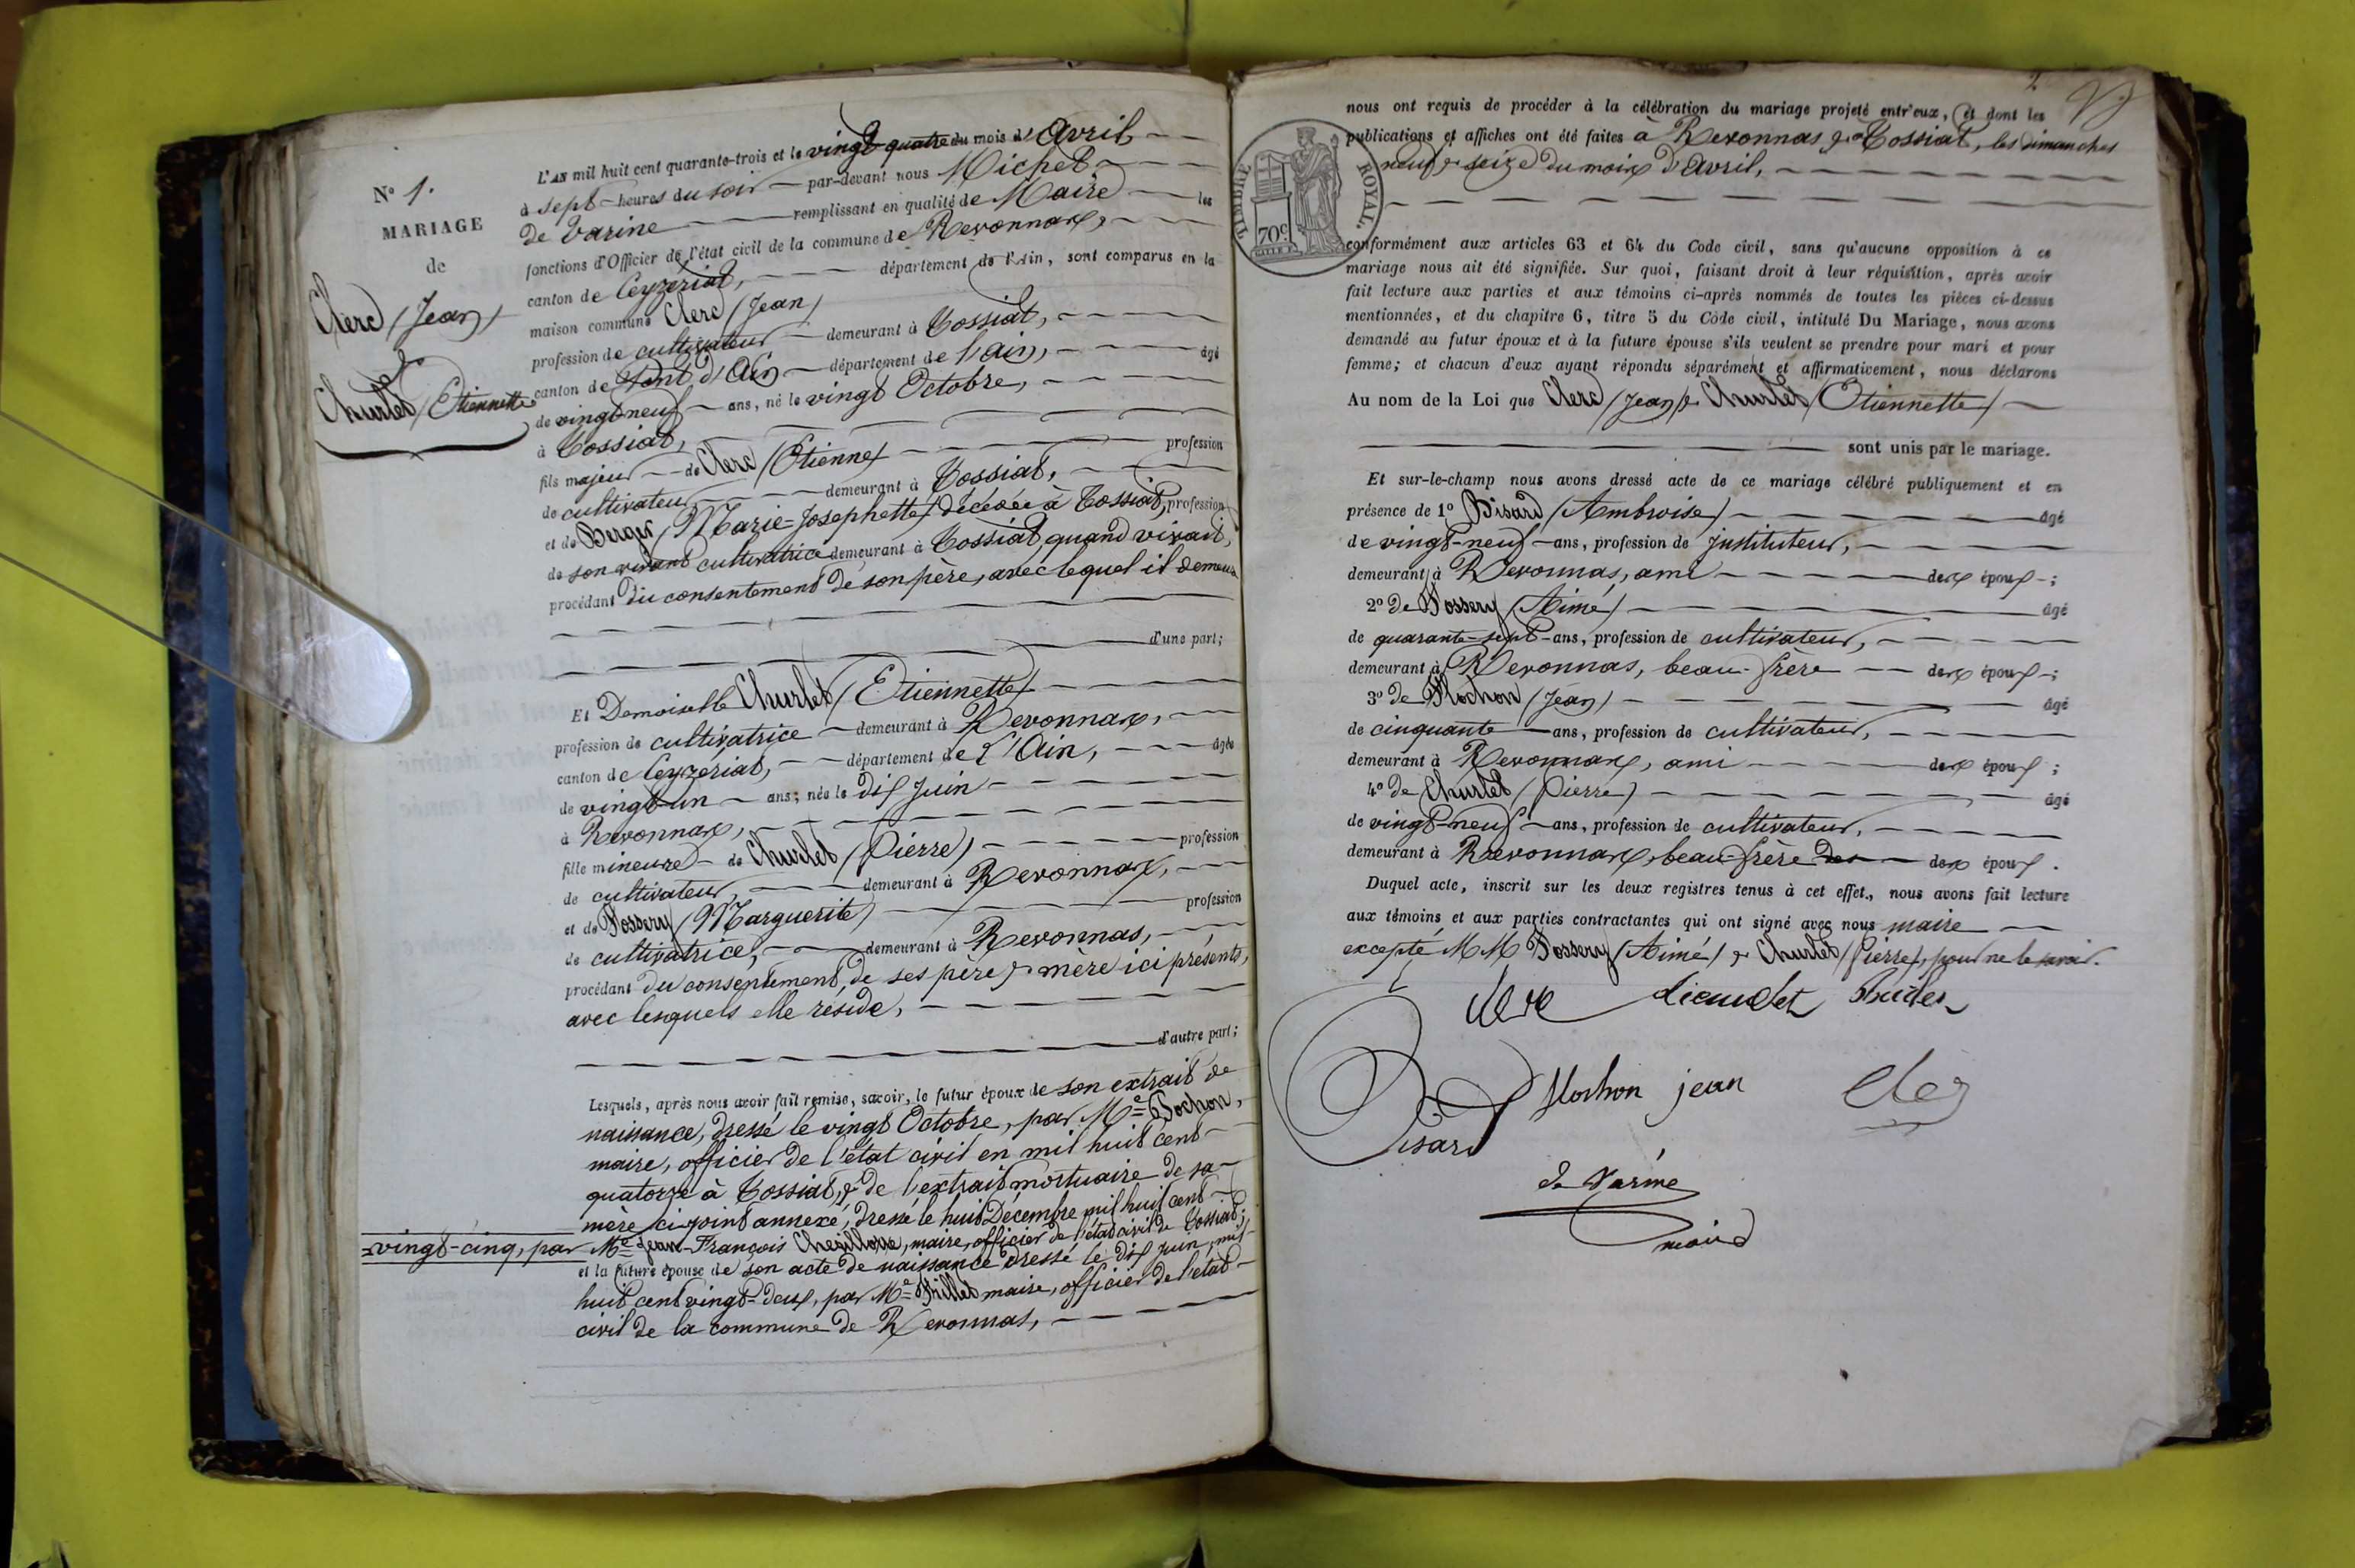 N° 1.
MARIAGE
de
Clerc (Jean)
&
Churlet (Etiennette
L'AN mil huit cent quarante-trois et le vingt-quatre du mois d'Avril
à sept heures du soir par-devant nous Michel
de Varine remplissant en qualité de Maire les
fonctions d'Officier de l'état civil de la commune de Revonnax,
canton de Ceyzériat, département de l'Ain, sont comparus en la
maison commune Clerc (Jean)
profession de cultivateur demeurant à Tossiat,
canton de Pont d'Ain département de l'ain, âgé
de vingt-neuf ans, né le vingt Octobre,
à Tossiat,
fils majeur de Clerc (Etienne) profession
de cultivateur demeurant à Tossiat,
et de Berger (Marie-Josephette) décédée à Tossiat, profession
de son vivant cultivatrice demeurant à Tossiat, quand vivait,
procédant du consentement de son père, avec lequel il demeure
d'une part;
Et Demoiselle Churlet (Etiennette)
profession de cultivatrice demeurant à Revonnax,
canton de Ceyzériat, département de L'Ain, âgée
de vingt-un ans; née le dix Juin
à Revonnax,
fille mineure de Churlet (Pierre) profession
de cultivateur, demeurant à Revonnax,
et de Possery (Marguerite) profession
de cultivatrice, demeurant à Revonnas,
procédant du consentement de ses père & mère ici présents,
avec lesquels elle réside,
d'autre part;
Lesquels, après nous avoir fait remise, savoir, le futur époux de son extrait de
naissance, dressé le vingt Octobre, par Me Pochon,
maire, officier de l'état civil en mil huit cent
quatorze à Tossiat, & de l'extrait mortuaire de sa
mère ci-joint annexé, dressé le huit Décembre mil huit cent
=vingt-cinq, par Me Jean-François maire, officier de l'état civil de Tossiat;
et la future épouse de son acte de naissance dressé le dix Juin, mil
huit cent vingt-deux, par Me Trillet maire, officier de l'état
civil de la commune de Revonnas,
2
nous ont requis de procéder à la célébration du mariage projeté entr'eux, et dont les
publications et affiches ont été faites à Revonnas & à Tossiat, les dimanches
neuf & seize du mois d'Avril,
TIMBRE ROYAL.
70c.
conformément aux articles 63 et 64 du Code civil, sans qu'aucune opposition à ce
mariage nous ait été signifiée. Sur quoi, faisant droit à leur réquisition, après avoir
fait lecture aux parties et aux témoins ci-après nommés de toutes les pièces ci-dessus
mentionnées, et du chapitre 6, titre 5 du Code civil, intitulé Du Mariage, nous avons
demandé au futur époux et à la future épouse s'ils veulent se prendre pour mari et pour
femme; et chacun d'eux ayant répondu séparément et affirmativement, nous déclarons
Au nom de la Loi que Clerc (Jean) & Churlet (Etiennette)
sont unis par le mariage.
Et sur-le-champ nous avons dressé acte de ce mariage célébré publiquement et en
présence de 1° Bisard (Ambroise) âgé
de vingt-neuf ans, profession de instituteur,
demeurant à Revonnas, ami des époux;
2° de Possery (Aimé) âgé
de quarante-sept ans, profession de cultivateur,
demeurant à Revonnas, beau-frère des époux;
3° de Plochon (Jean) âgé
de cinquante ans, profession de cultivateur,
demeurant à Revonnax, ami des époux;
4° de Churlet (Pierre) âgé
de vingt-neuf ans, profession de cultivateur,
demeurant à Revonnax, beau-frère des des époux.
Duquel acte, inscrit sur les deux registres tenus à cet effet, nous avons fait lecture
aux témoins et aux parties contractantes qui ont signé avec nous maire
excepté MM Possery (Aimé) & Churlet (Pierre), pour ne le savoir.
Clerc
Bisard
Plochon jean
de Varine
maire